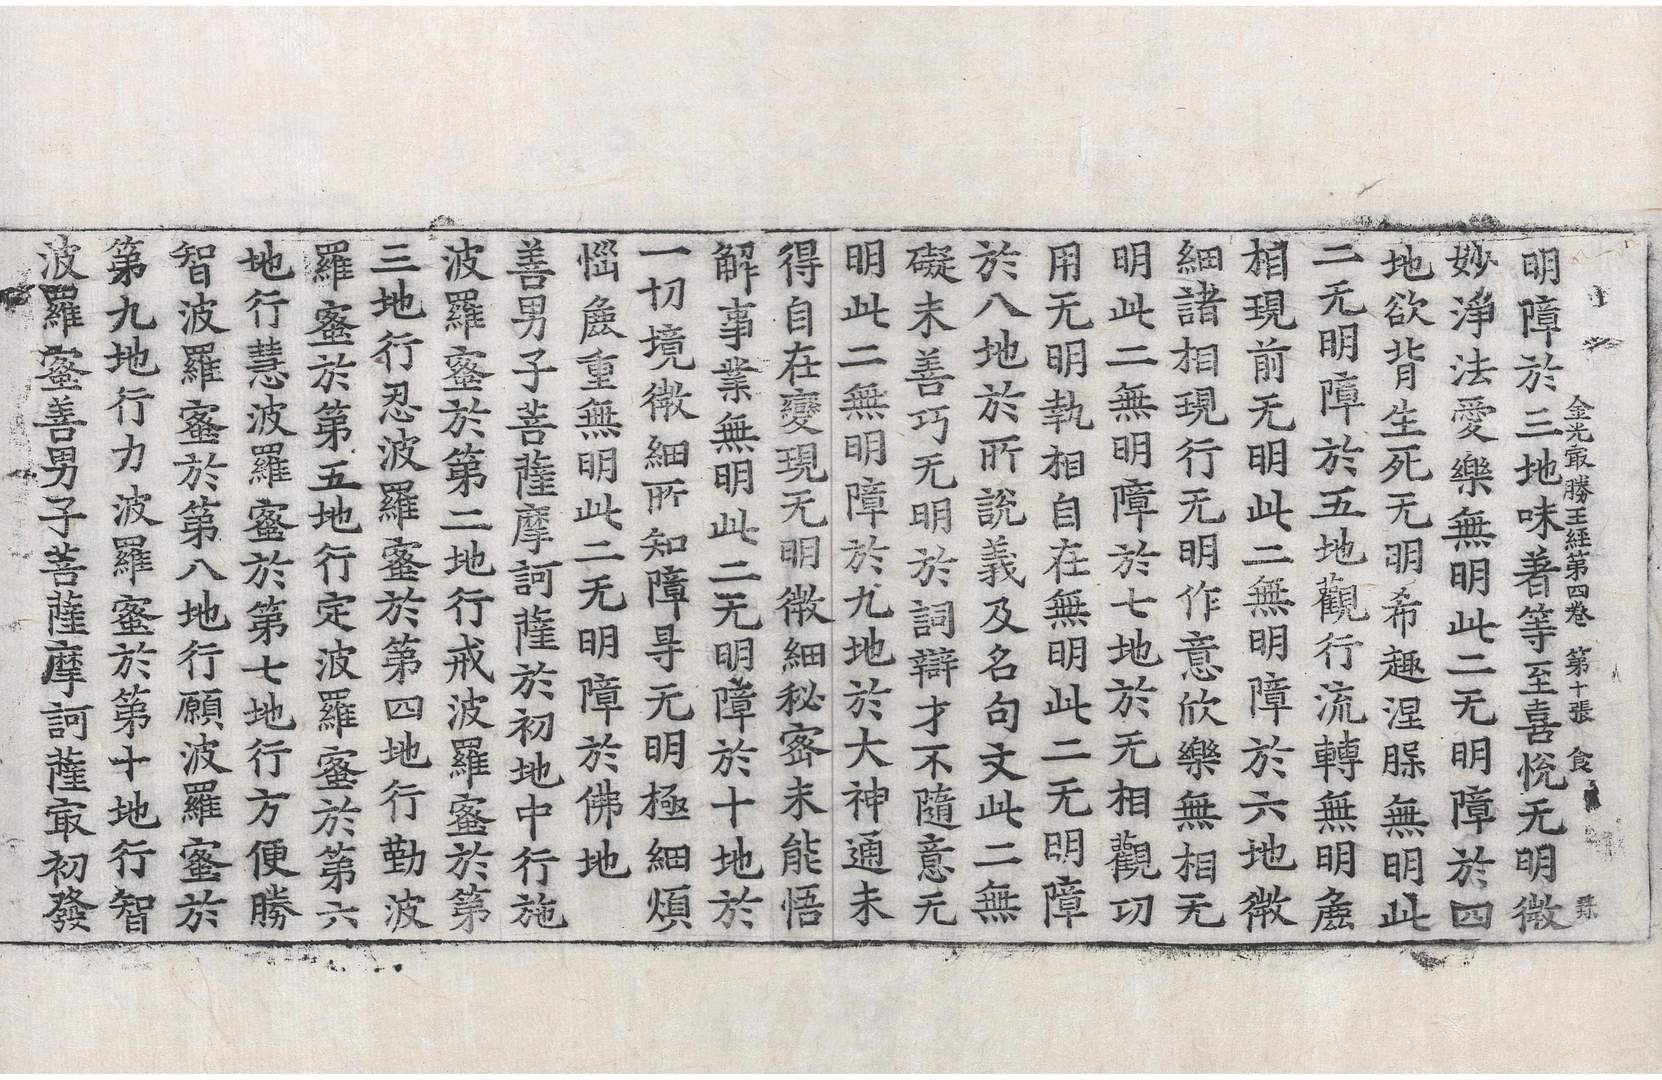 金光㝡勝王經第四卷 第十張 食
明障於三地味著等至喜悅无明微
妙淨法愛樂無明此二无明障於四
地欲背生死无明希趣涅槃無明此
二无明障於五地觀行流轉無明麁
相現前无明此二無明障於六地微
細諸相現行无明作意欣樂無相无
明此二無明障於七地於无相觀功
用无明執相自在無明此二无明障
於八地於所說義及名句文此二無
礙未善巧无明於詞辯才不隨意无
明此二無明障於九地於大神通未
得自在變現无明微細秘密未能悟
解事業無明此二无明障於十地於
一切境微細所知障㝵无明極細煩
惱麁重無明此二无明障於佛地
善男子菩薩摩訶薩於初地中行施
波羅蜜於第二地行戒波羅蜜於第
三地行忍波羅蜜於第四地行勤波
羅蜜於第五地行定波羅蜜於第六
地行慧波羅蜜於第七地行方便勝
智波羅蜜於第八地行願波羅蜜於
第九地行力波羅蜜於第十地行智
波羅蜜善男子菩薩摩訶薩㝡初發